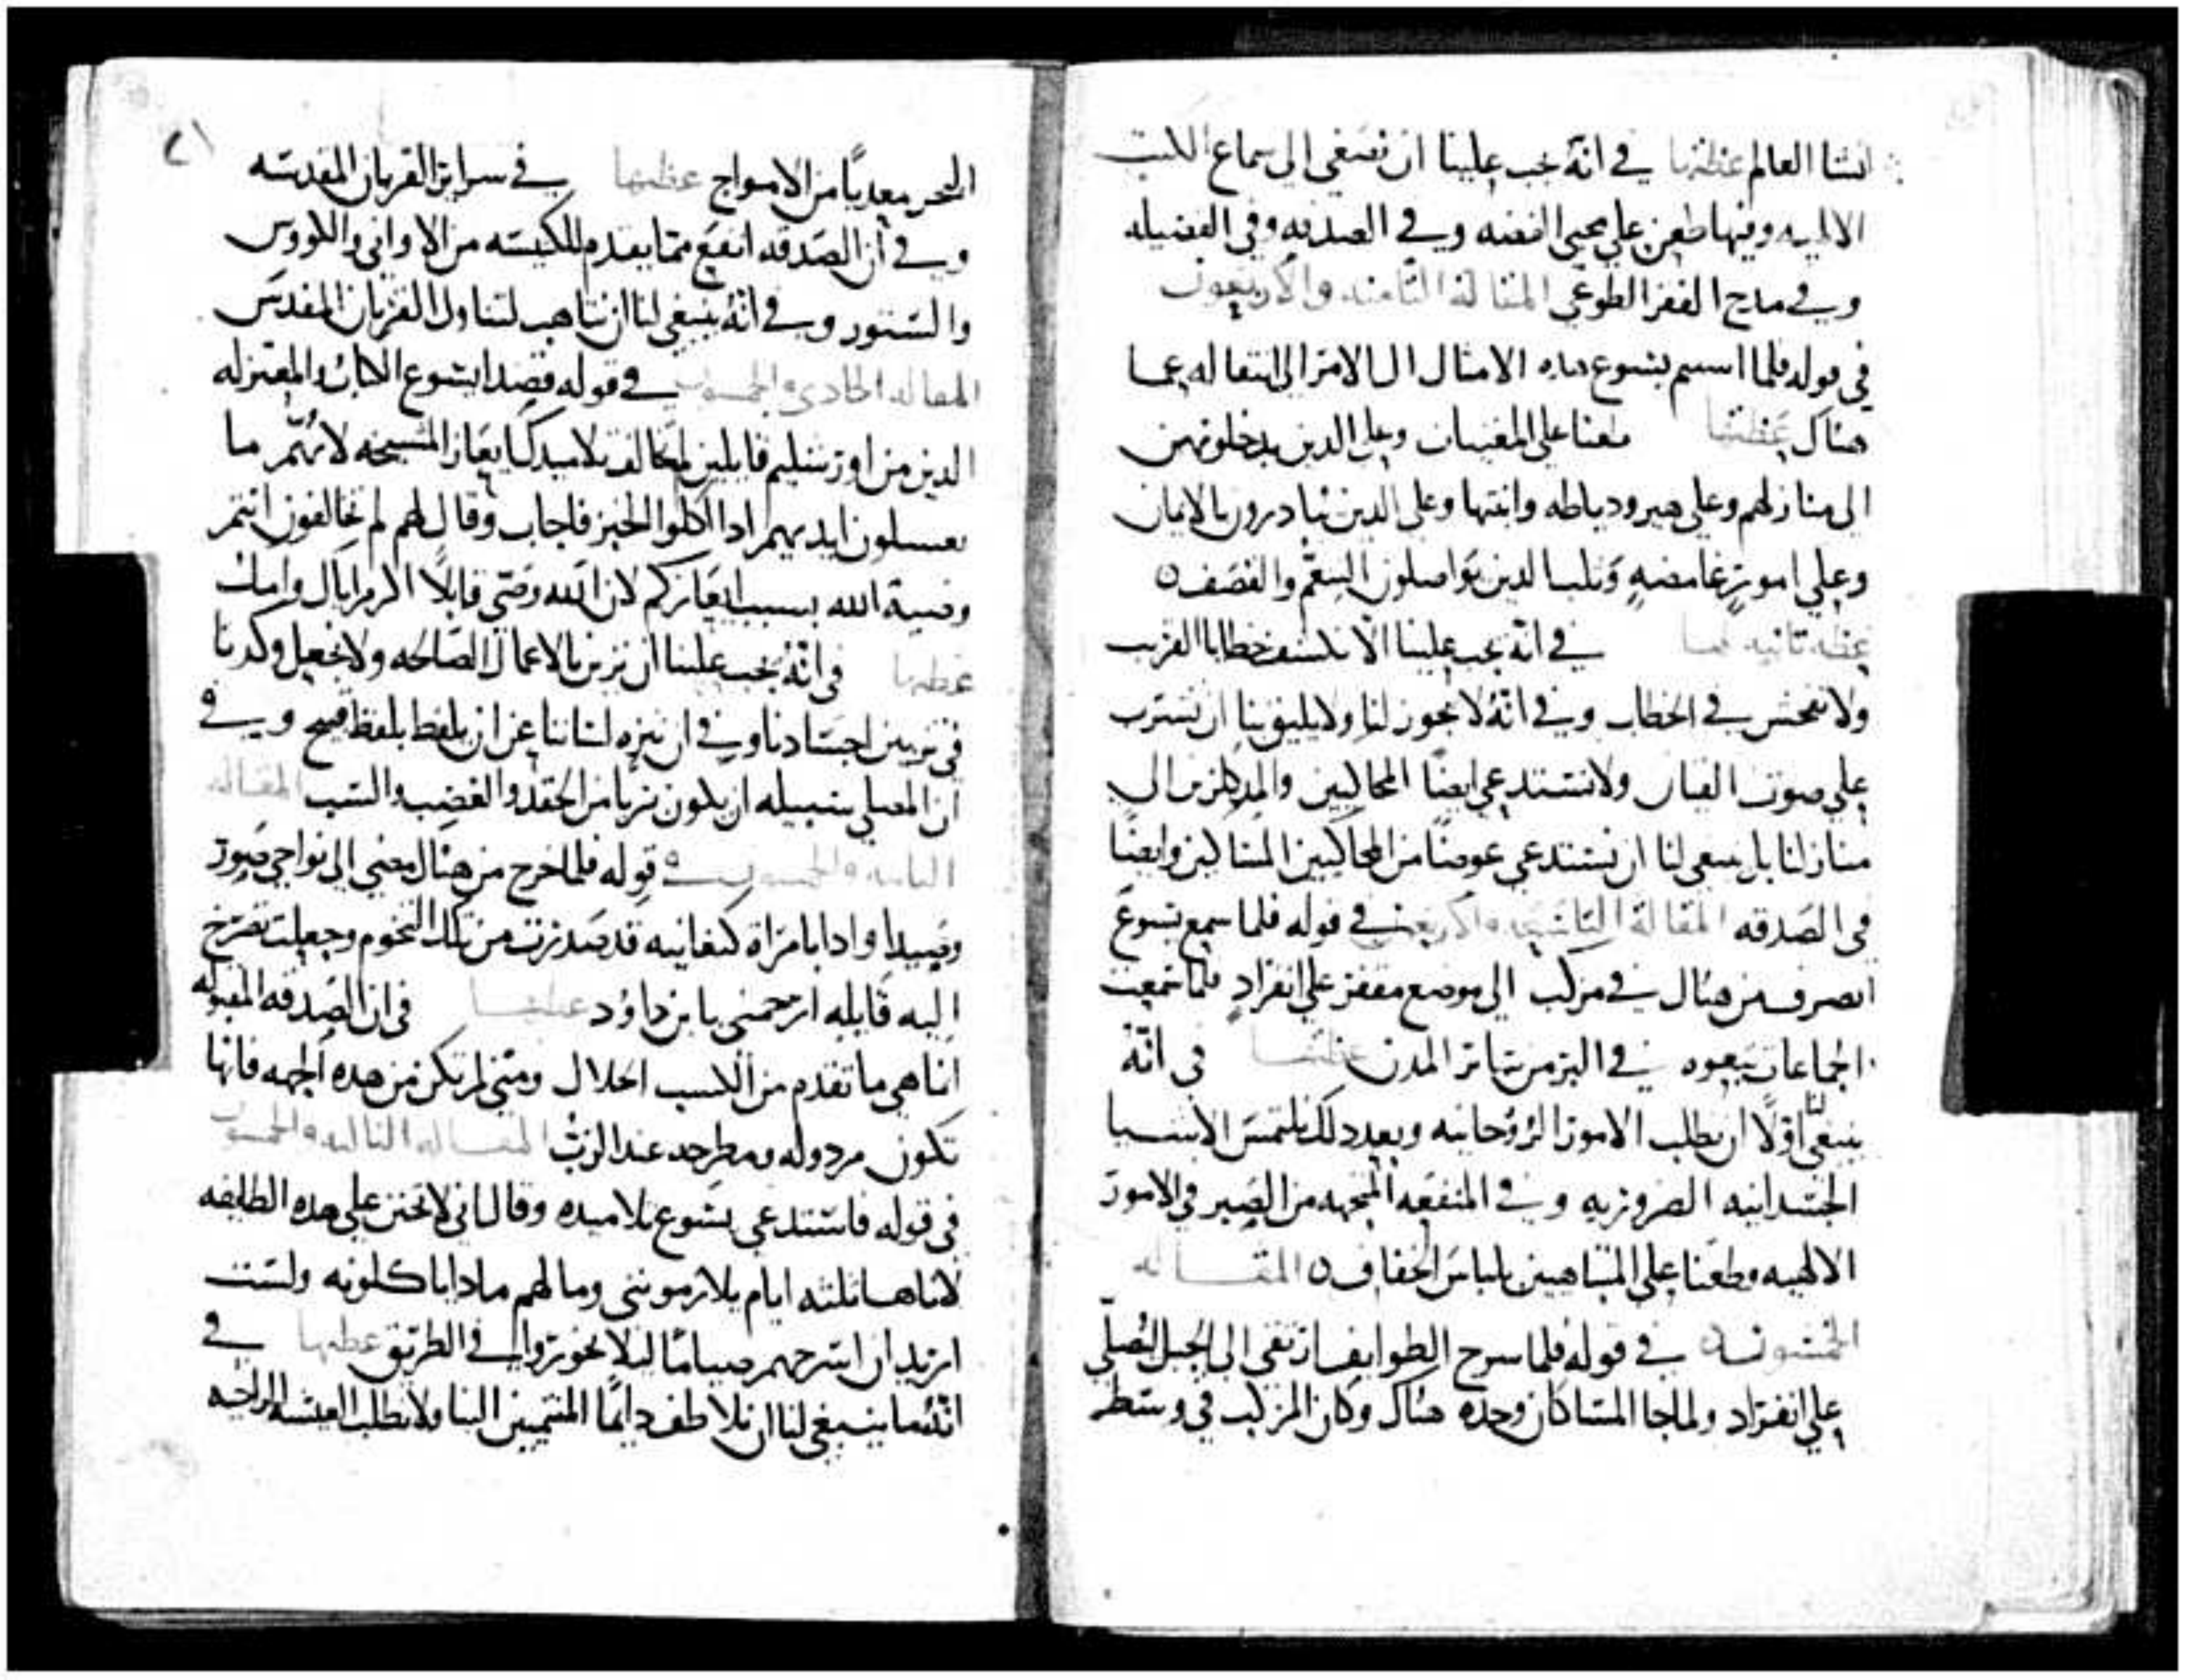 انشا العالم عظتها في انه يجب علينا ان نصغي الى سماع الكتب
الالهيه وفيها طعن على محبي الفضه وفي الصدقه وفي الفضيله
وفي مدح الفقر الطوعي المقاله الثامنه والاربعون
في قوله فلما اتمم يشوع هذه الامثال الى انتقاله عما
هناك عظتها طعنا على المغنيات وعلى الذين يدخلونهن
الى منازلهم وعلى هيروديا طه وابنتها وعلى الدين يبادرون بالايمان
وعلى امورٍ غامضهٍ وثلب الدين يواصلون التنعّم والقصف ه
عظه ثانيه لها في انه يجب علينا الا نكشف خطايا القريب
ولا نفحش في الخطاب وفي انّهُ لا يجوز لنا ولا يليق بنا ان نشرب
على صوت القيان ولا نستدعي ايضًا المحاكيين والمدكلزين الى
منازلنا بل ينبغي لنا ان نستدعي عوضًا من المحاكيين المساكين وايضًا
في الصَدقه المقالة التاسعه والاربعون في قوله فلما سمع يشوعَ
انصرف من هناك في مركب الى موضع مقفر على انفرادٍ فلما سمعت
الجماعات تبعوه في البر من سائر المدن عظتها في انّهُ
ينبغي لنا اوّلًا ان نطلب الامور الروحانيه وبعد دلك نلتمس الاشيا
الجسدانيه الضروريه وفي المنفعه المتجهه من الصبر في الامور
الالهيه وطعنًا على المتباهيين بلباس الخفاف ه المقاله
الخمسون في قوله فلما سرح الطوايف ارتقى الى الجبل ليُصلّي
على انفراد ولما جا المسا كان وحده هناك وكان المركب في وسط
٢١
البحر معديًا من الامواج عظتها في سراير القربان المقدسه
وفي ان الصَدقه انفع مما يقدم للكنيسه من الاواني والكووس
والستور وفي انّهُ ينبغي لنا ان نتاهب لتناول القربان المقدس
المقاله الحاديه والخمسون في قوله قصدا يشوع الكتاب والمعتزله
الدين من اورشليم قايلين لم يخالف تلاميدك ايعاز المشيخه لانهم ما
يغسلون ايديهم ادا اكلوا الخبز فاجاب وقال لهم لم تخالفون انتم
وصية الله بسبب ايعازكم لان الله وصّى قايلًا اكرم اباك وامك
عظتها في انّهُ يجب علينا ان نزين بالاعمال الصالحه ولا نجعل وكدنا
في تزيين اجسادنا وفي ان ننزه لساننا عن ان يلفظ بلفظ قبيح وفي
ان المصلي سبيله ان يكون بريا من الحقد والغضب والسب المقاله
الثانيه والخمسون في قوله فلما خرج من هناك مضى الى نواحي صور
وصيدا وادا بامراة كنعانيه قد صدرت من تلك التخوم وجعلت تصرخ
اليه قايله ارحمني يا بن داوُد عظتها في ان الصَدقه المقبوله
انما هي ما تقدم من الكسب الحلال ومتى لم تكن من هده الجهه فانها
تكون مردوله ومطرحه عند الربّ المقاله الثالثه والخمسون
في قوله فاستدعى يشوع تلاميده وقال اني لاتحنن على هده الطايفه
لان ها ثلثه ايام يلازمونني وما لهم مادا ياكلونه ولست
اريد ان اسرحهم صيامًا ليلا يخوروا في الطريق عظتها في
انّهُ ما ينبغي لنا ان نلاطف دايمًا المنتميين الينا ولا نطلب العيشه الراخيه